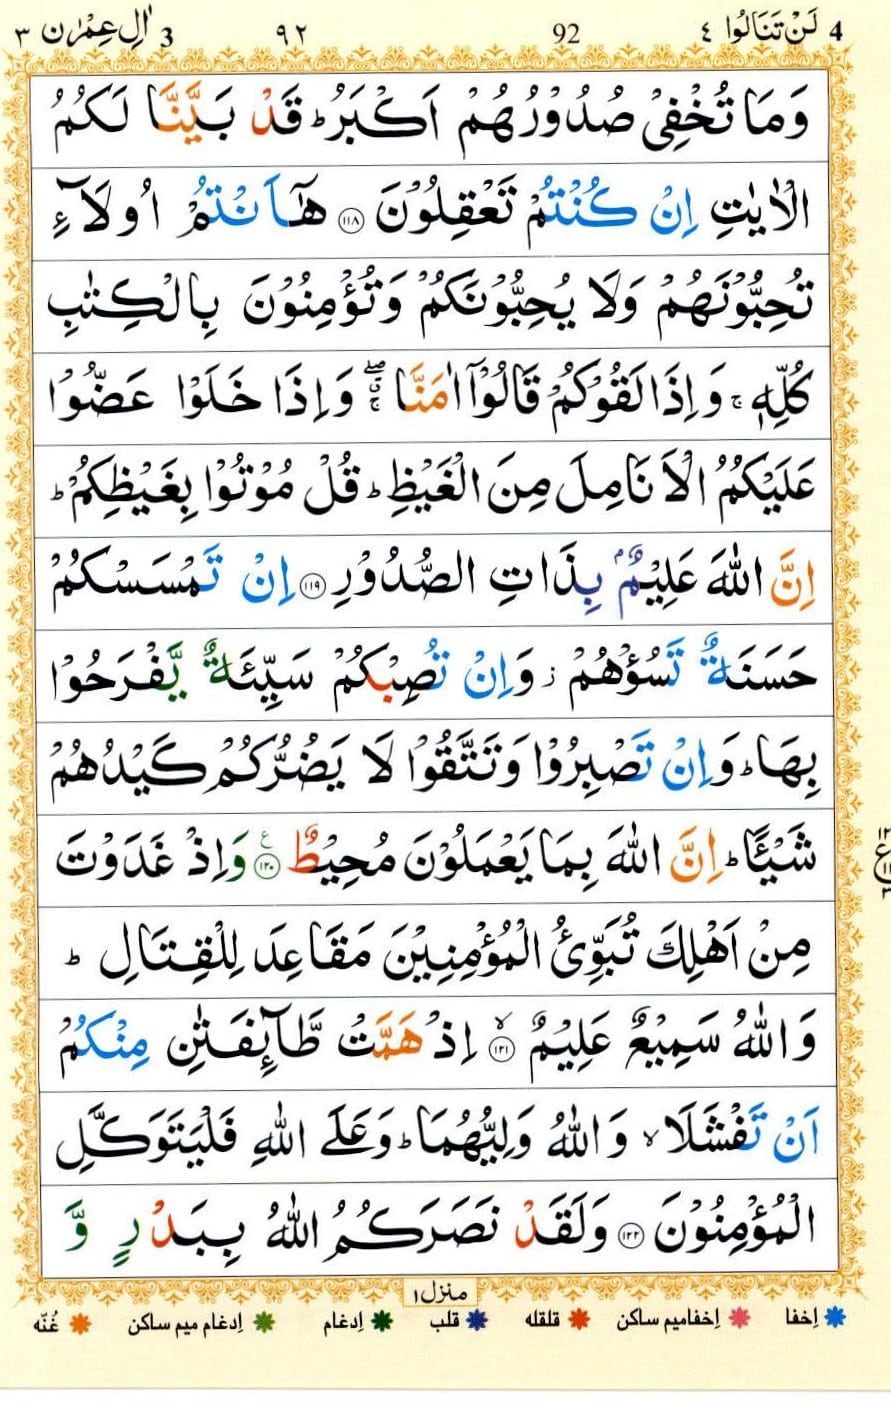 4 لَنْ تَنَالُوا ٤ 92 ٩٢ اٰلِ عِمْرٰن 3 ٣
وَمَا تُخْفِيْ صُدُوْرُهُمْ اَكْبَرُ ؕ قَدْ بَيَّنَّا لَكُمُ
الْاٰيٰتِ اِنْ كُنْتُمْ تَعْقِلُوْنَ ﴿١١٨﴾ هٰۤاَنْتُمْ اُولَآءِ
تُحِبُّوْنَهُمْ وَلَا يُحِبُّوْنَكُمْ وَتُؤْمِنُوْنَ بِالْكِتٰبِ
كُلِّهٖ ۚ وَاِذَا لَقُوْكُمْ قَالُوْۤا اٰمَنَّا ۖۗۚ وَاِذَا خَلَوْا عَضُّوْا
عَلَيْكُمُ الْاَنَامِلَ مِنَ الْغَيْظِ ؕ قُلْ مُوْتُوْا بِغَيْظِكُمْ ؕ
اِنَّ اللّٰهَ عَلِيْمٌۢ بِذَاتِ الصُّدُوْرِ ﴿١١٩﴾ اِنْ تَمْسَسْكُمْ
حَسَنَةٌ تَسُؤْهُمْ ز وَاِنْ تُصِبْكُمْ سَيِّئَةٌ يَّفْرَحُوْا
بِهَا ؕ وَاِنْ تَصْبِرُوْا وَتَتَّقُوْا لَا يَضُرُّكُمْ كَيْدُهُمْ
شَيْـًٔا ؕ اِنَّ اللّٰهَ بِمَا يَعْمَلُوْنَ مُحِيْطٌ ﴿١٢٠﴾ ع وَاِذْ غَدَوْتَ
مِنْ اَهْلِكَ تُبَوِّئُ الْمُؤْمِنِيْنَ مَقَاعِدَ لِلْقِتَالِ ؕ
وَاللّٰهُ سَمِيْعٌ عَلِيْمٌ ﴿١٢١﴾ ۙ اِذْ هَمَّتْ طَّآئِفَتٰنِ مِنْكُمْ
اَنْ تَفْشَلَا ۙ وَاللّٰهُ وَلِيُّهُمَا ؕ وَعَلَى اللّٰهِ فَلْيَتَوَكَّلِ
الْمُؤْمِنُوْنَ ﴿١٢٢﴾ وَلَقَدْ نَصَرَكُمُ اللّٰهُ بِبَدْرٍ وَّ
منزل ١
اِخفا اِخفامیم ساکن قلقله قلب اِدغام اِدغام میم ساکن غُنّه